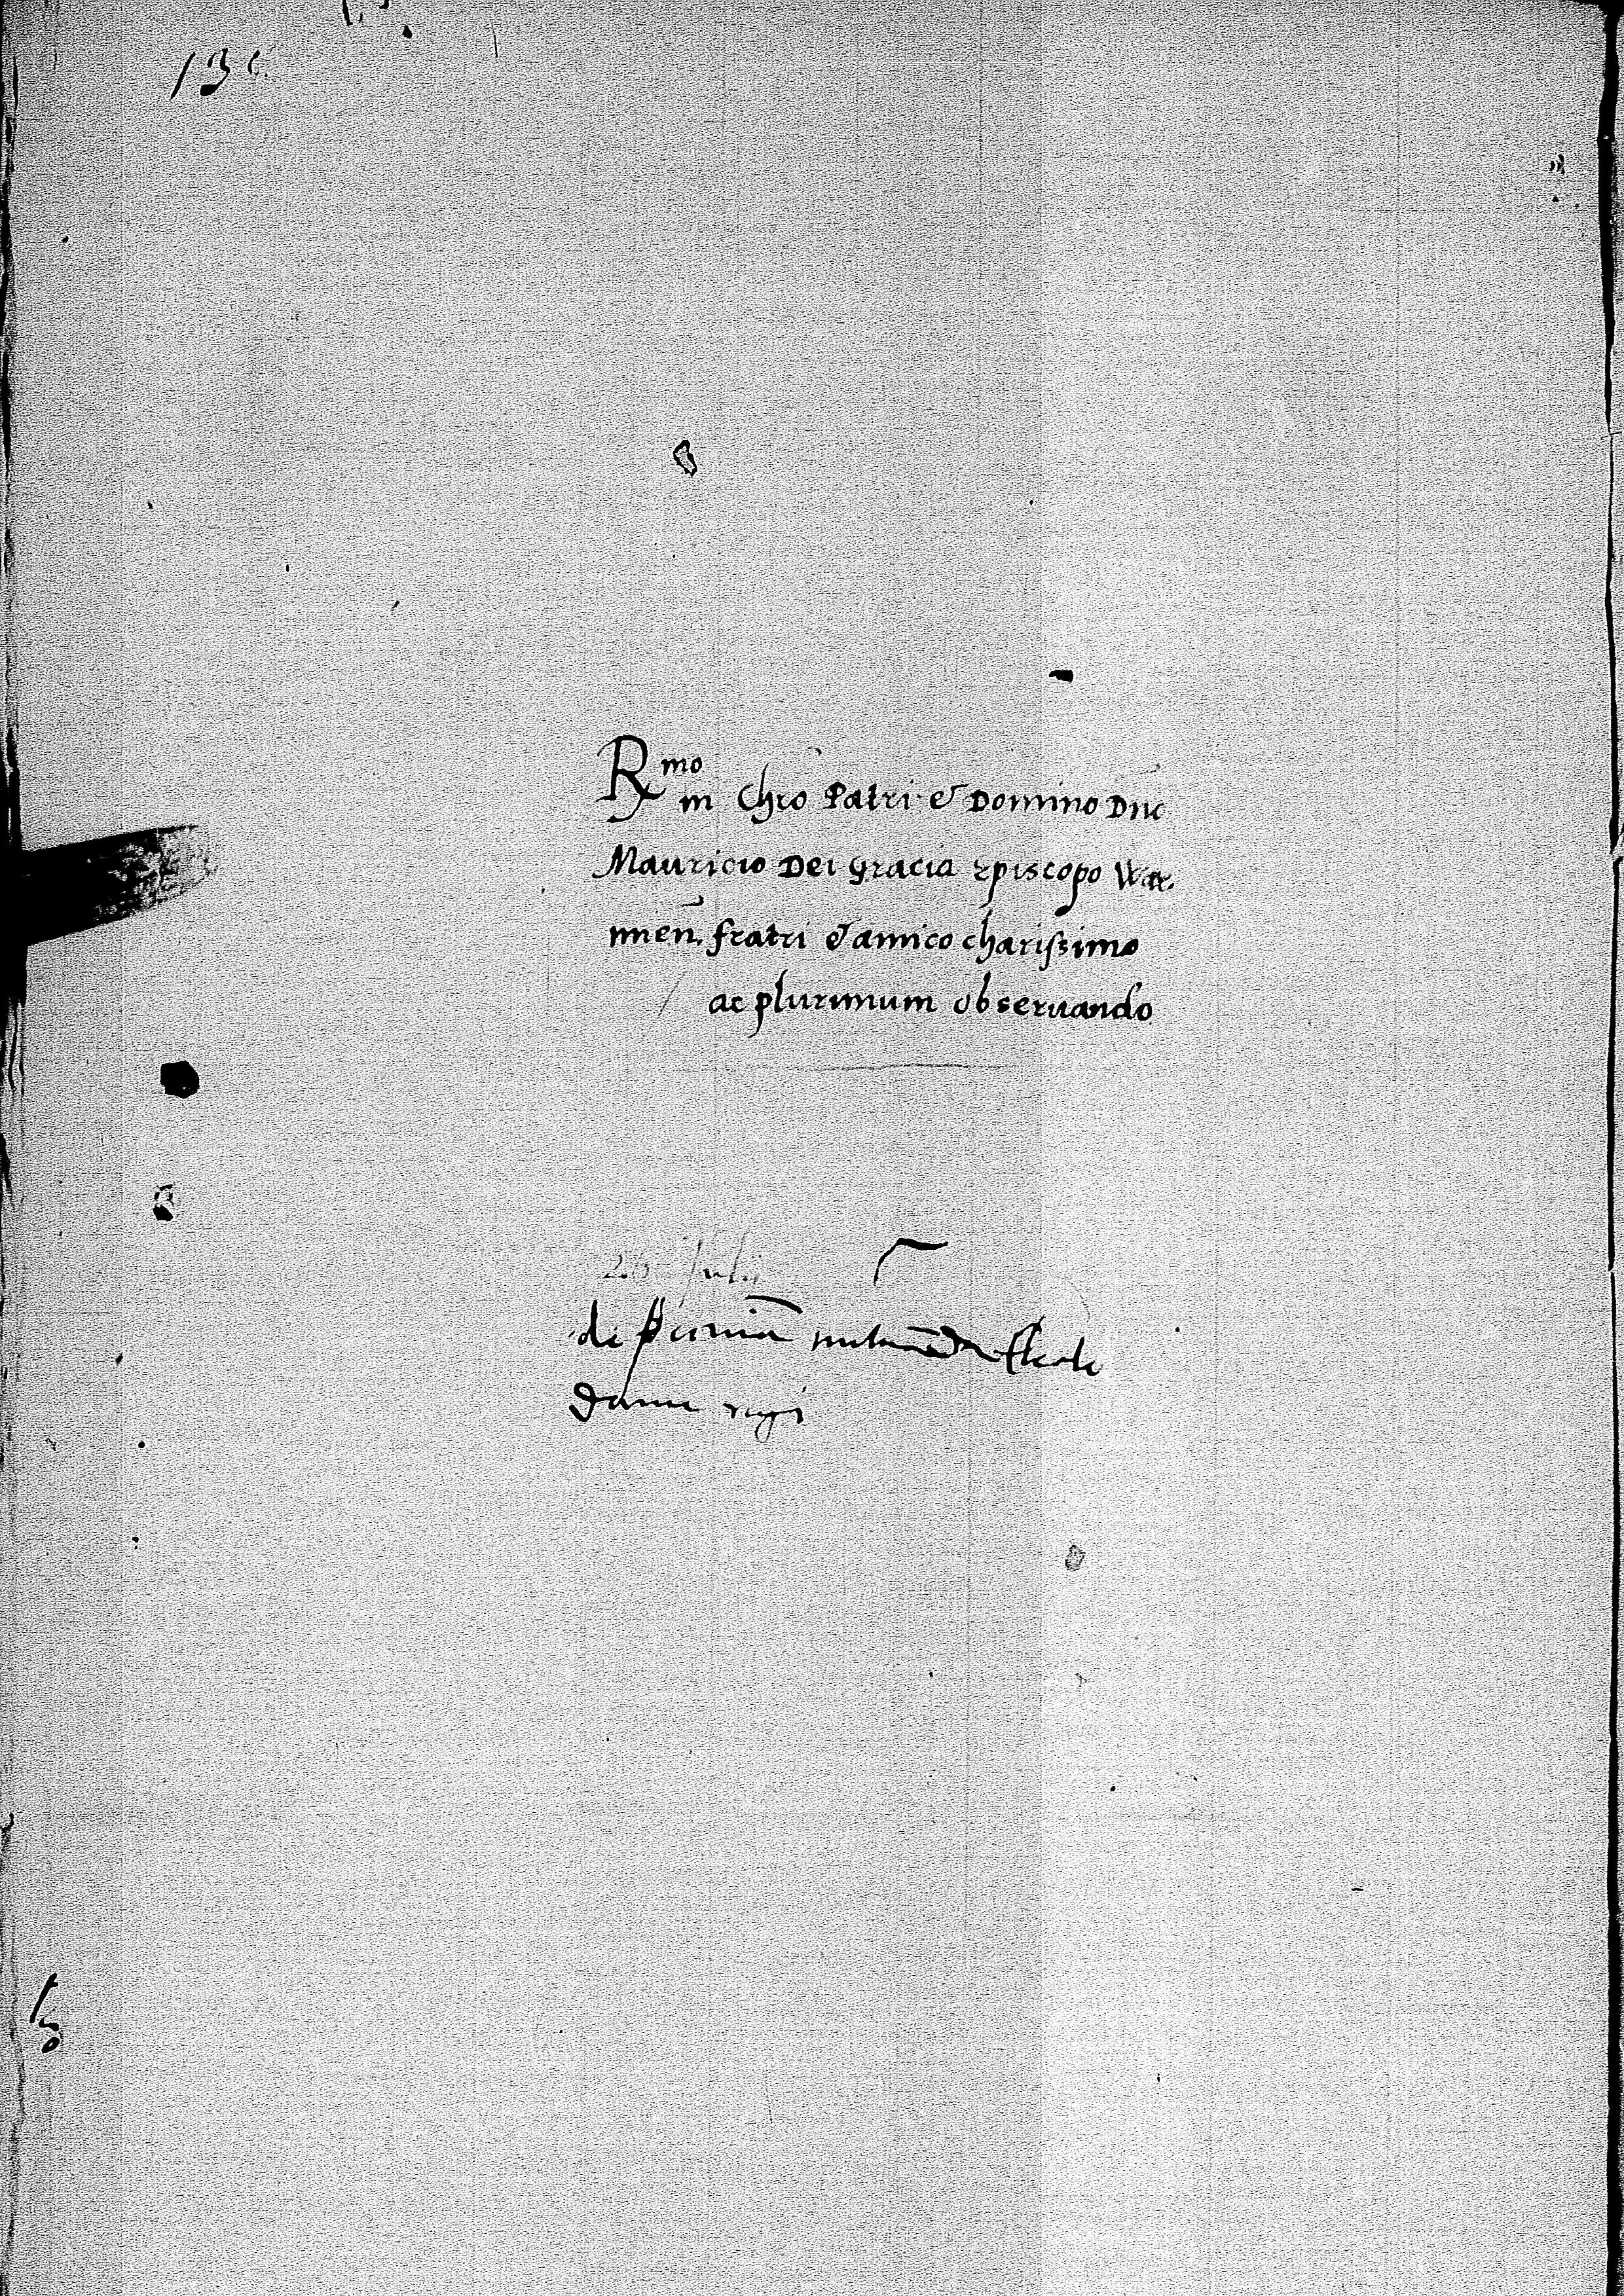 136
Rmo
in Chro Patri & Domino Dno
Mauricio Dei gracia Episcopo War
mien. fratri & amico charissimo
ac plurimum observando
26 Julii
de
regi